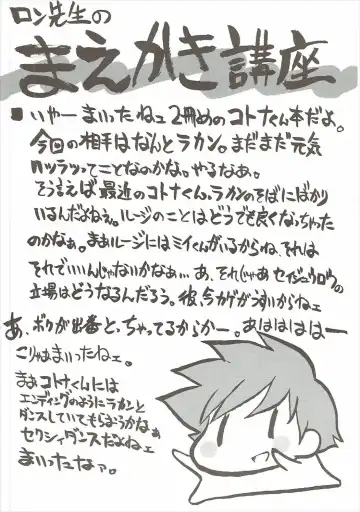 ロン先生の
まえがき講座
■いやーまいったねェ2冊めのコトナくん本だよ。
今回の相手はなんとラカン。まだまだ元気
ロリラリってことなのかな。やるなぁ。
そう言えば最近のコトナくん、ラカンのそばにばかり
いるんだよねぇ。ルージのことはどうでも良くなっちゃった
のかなぁ。まぁルージにはミィくんがいるからね、それは
それでいいんじゃないかなぁ…あ、それじゃあセイジュウロウの
立場はどうなるんだろう。彼、今カゲがうすいからねェ
あ、ボクが出番とっちゃってるからかー。あはははは―
こりゃぁまいったねェ。
まぁコトナくんには
エンディングのようにラカンと
ダンスしていてもらおうかなぁ
セクシィダンスだよねェ
まいったなァ。